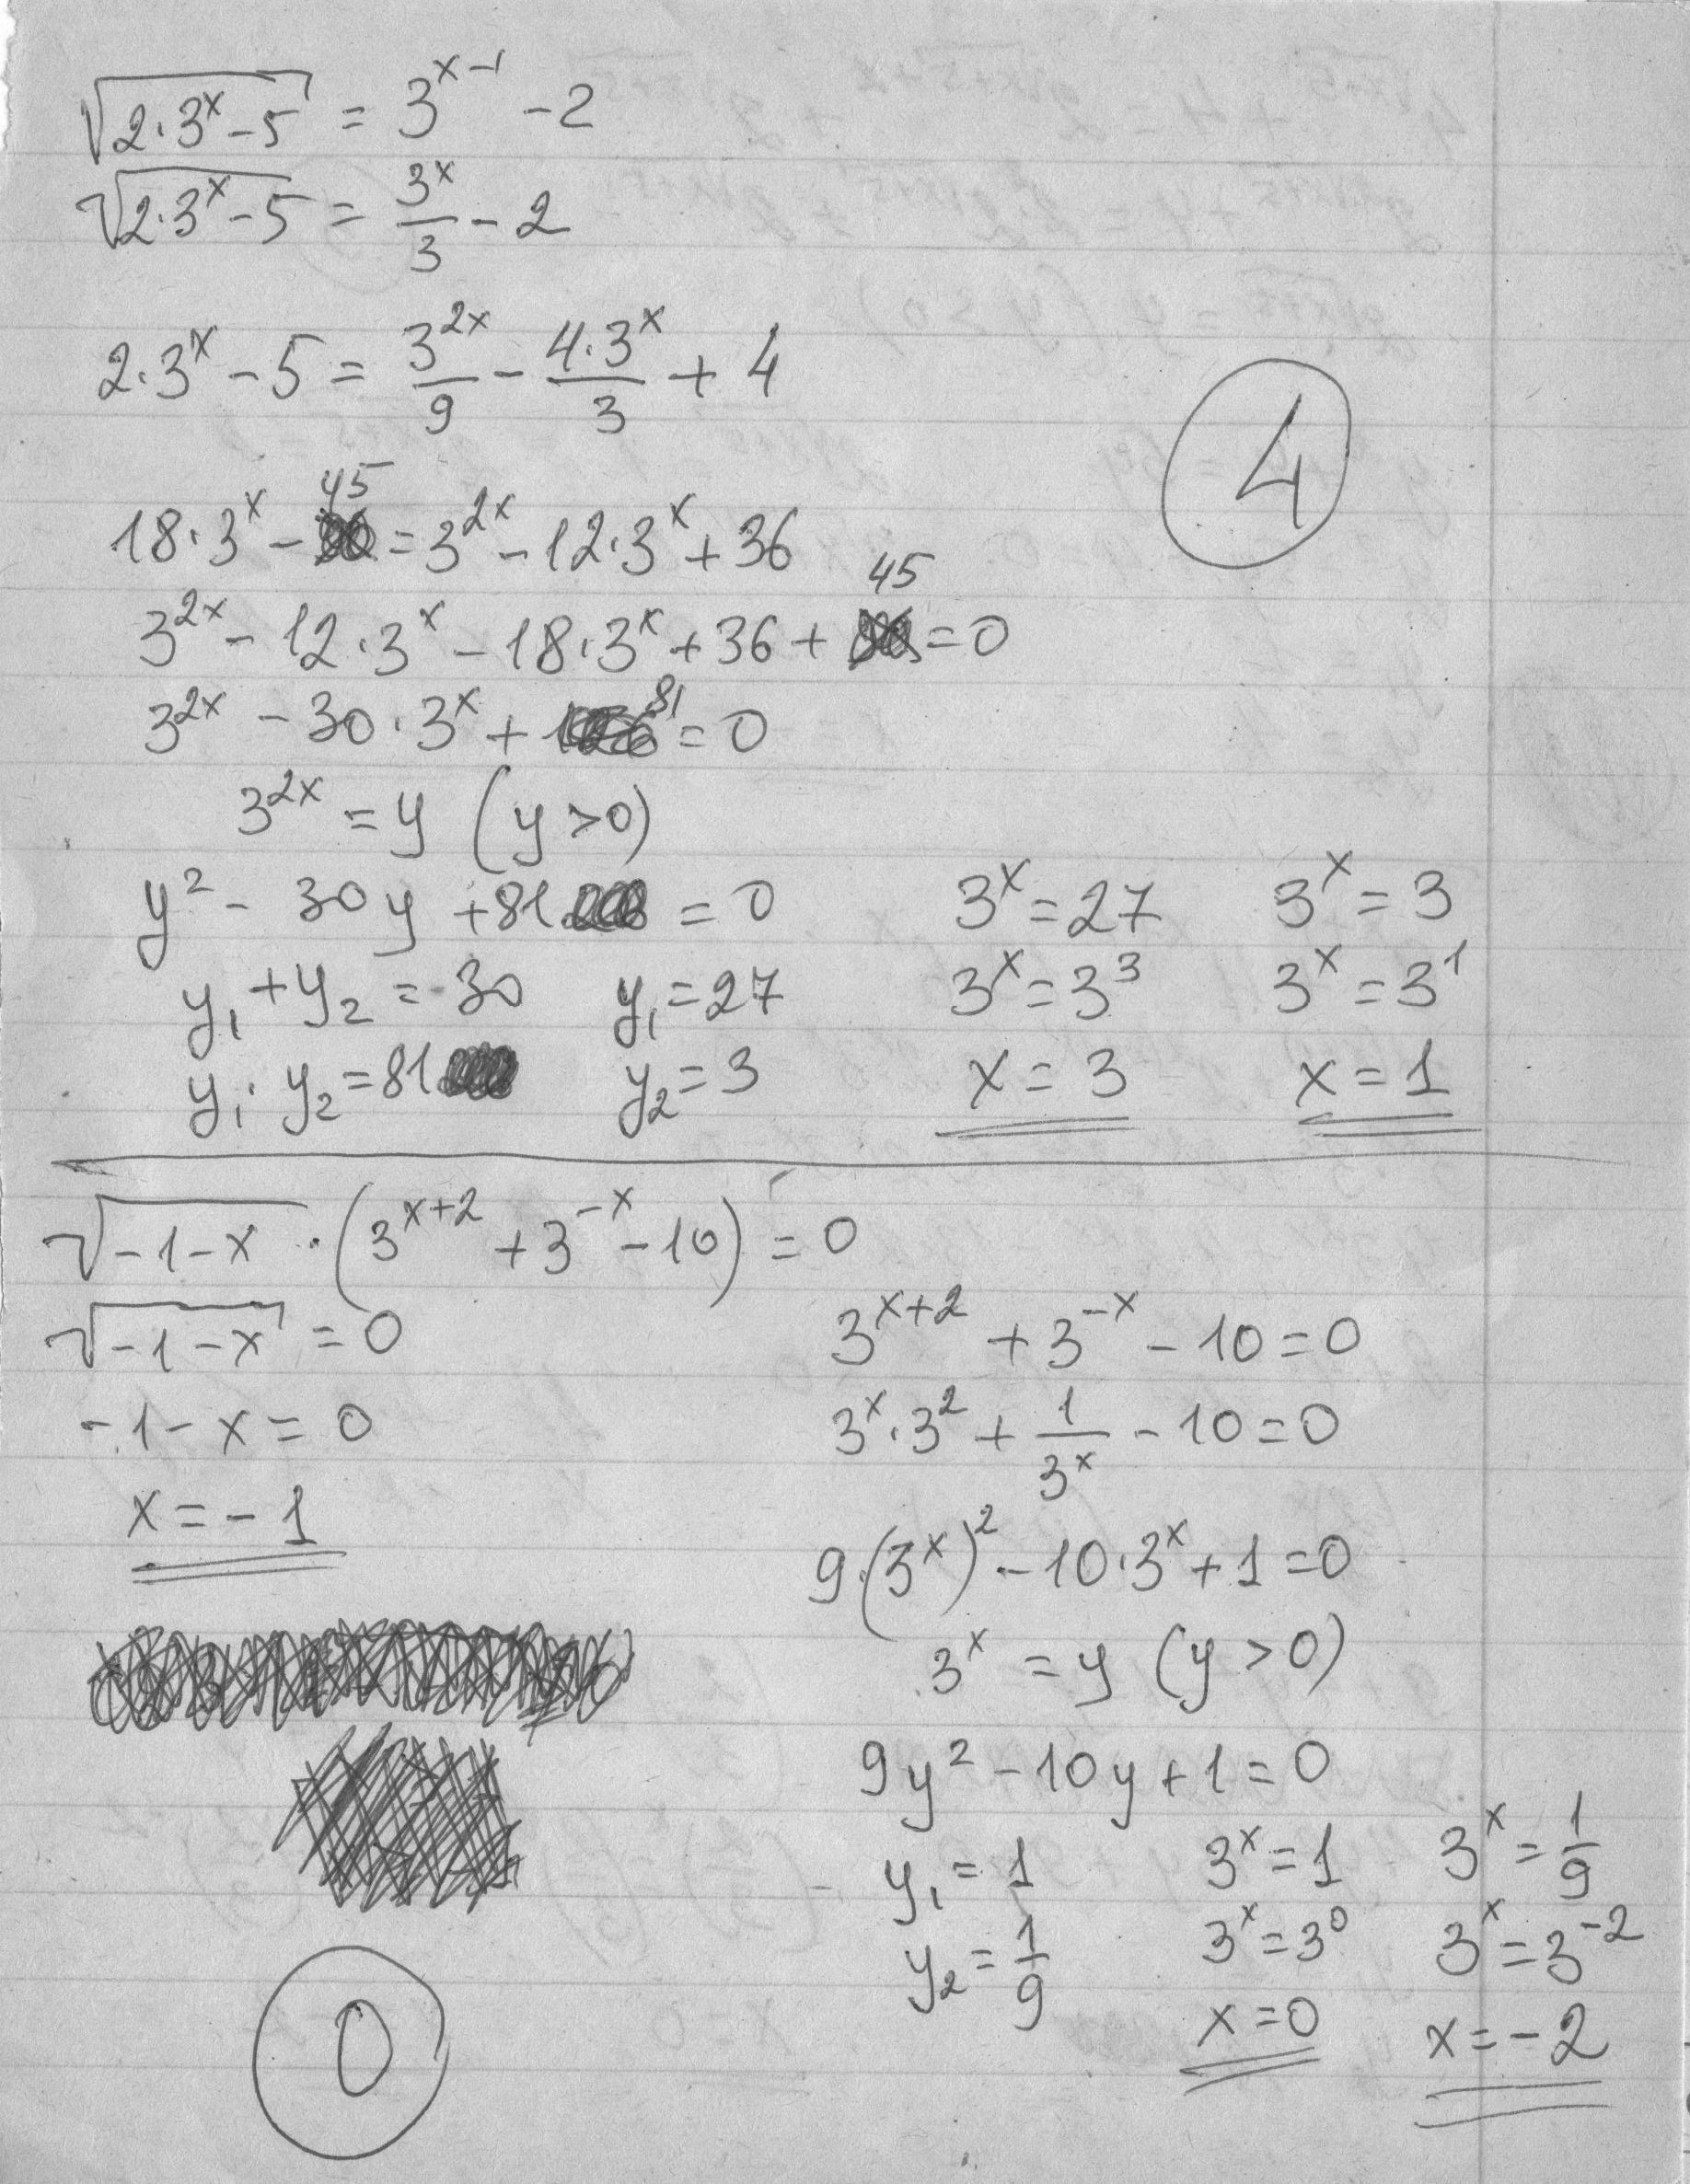 √(2·3^x − 5) = 3^(x−1) − 2
√(2·3^x − 5) = 3^x/3 − 2
2·3^x − 5 = 3^(2x)/9 − 4·3^x/3 + 4
4
18·3^x − 45 = 3^(2x) − 12·3^x + 36
3^(2x) − 12·3^x − 18·3^x + 36 + 45 = 0
3^(2x) − 30·3^x + 81 = 0
3^(2x) = y (y > 0)
y² − 30y + 81 = 0
y₁ + y₂ = 30 y₁ = 27
y₁ · y₂ = 81 y₂ = 3
3^x = 27 3^x = 3
3^x = 3³ 3^x = 3¹
x = 3 x = 1
√(−1 − x) · (3^(x+2) + 3^(−x) − 10) = 0
√(−1 − x) = 0
−1 − x = 0
x = −1
3^(x+2) + 3^(−x) − 10 = 0
3^x · 3² + 1/3^x − 10 = 0
9·(3^x)² − 10·3^x + 1 = 0
3^x = y (y > 0)
9y² − 10y + 1 = 0
y₁ = 1
y₂ = 1/9
3^x = 1 3^x = 1/9
3^x = 3⁰ 3^x = 3^(−2)
x = 0 x = −2
0